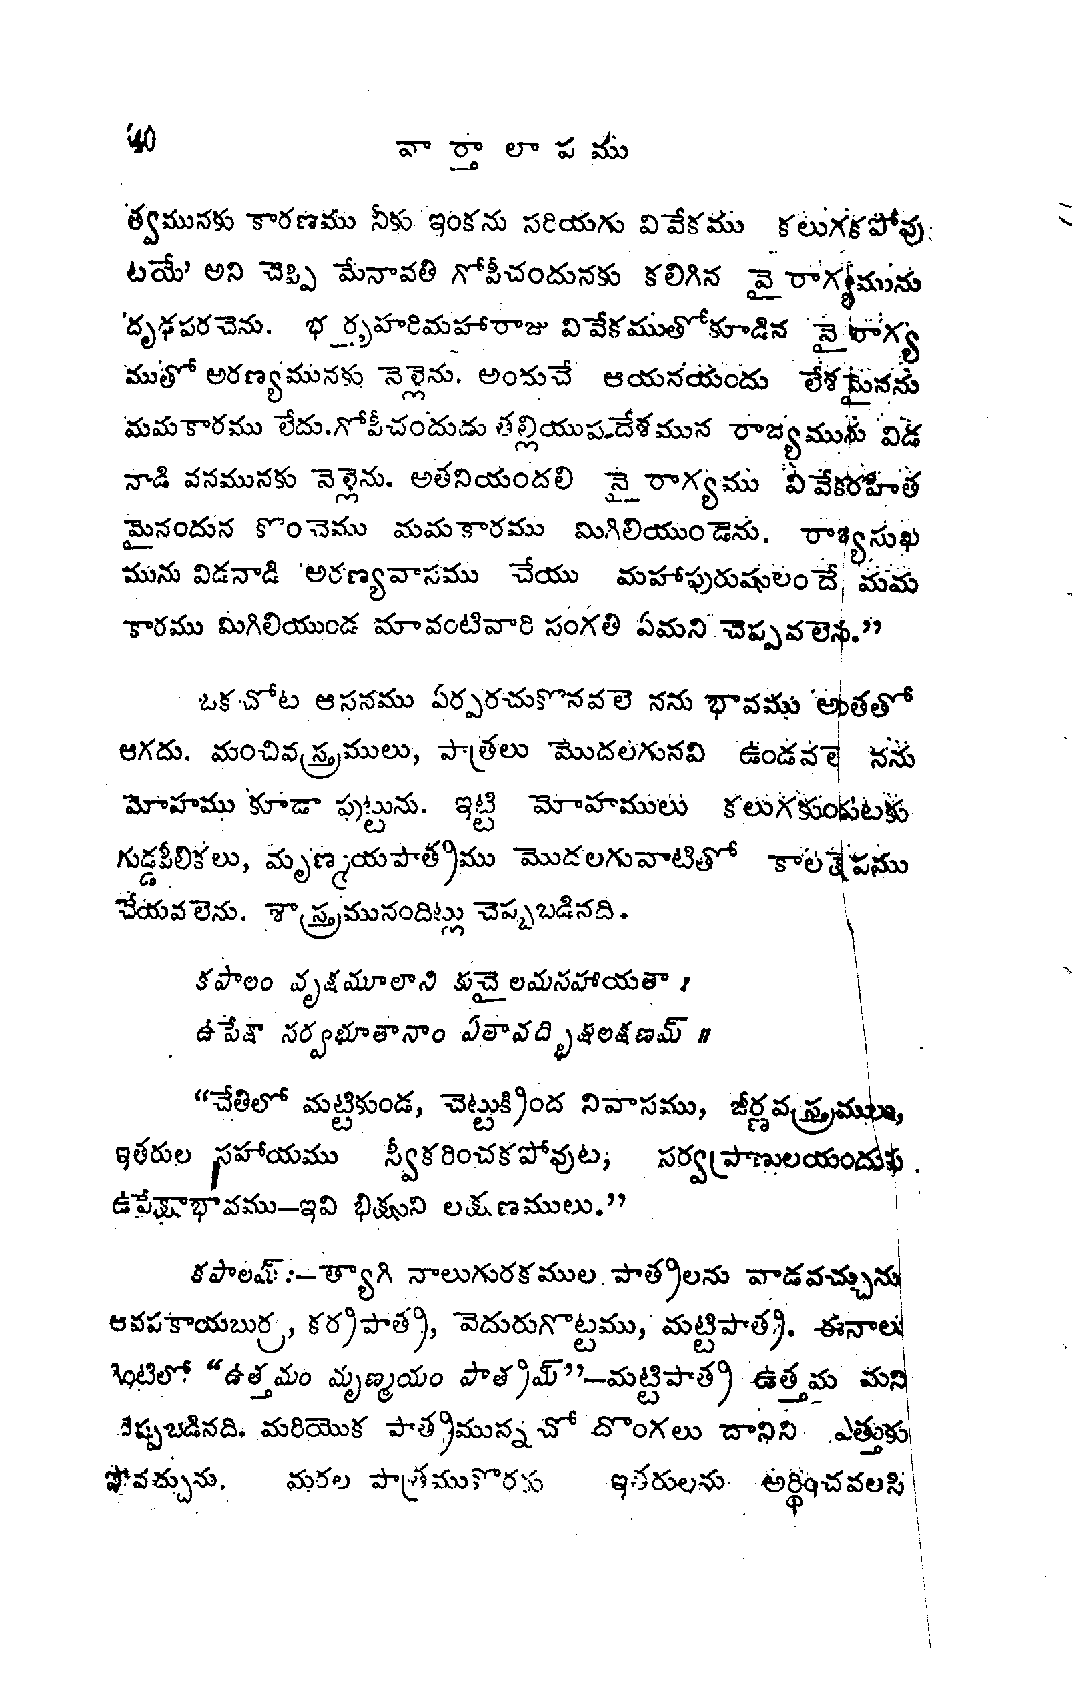 40
వార్తాలాపము
త్వమునకు కారణము నీకు ఇంకను సరియగు వివేకము కలుగకపోవు
టయే' అని చెప్పి మేనావతి గోపీచందునకు కలిగిన వైరాగ్యమును
దృఢపరచెను. భర్తృహరిమహారాజు వివేకముతోకూడిన వైరాగ్య
ముతో అరణ్యమునకు వెళ్లెను. అందుచే ఆయనయందు లేశమైనను
మమకారము లేదు. గోపీచందుడు తల్లియుపదేశమున రాజ్యమును విడ
నాడి వనమునకు వెళ్లెను. అతనియందలి వైరాగ్యము వివేకరహిత
మైనందున కొంచెము మమకారము మిగిలియుండెను. రాజ్యసుఖ
మును విడనాడి అరణ్యవాసము చేయు మహాపురుషులందే మమ
కారము మిగిలియుండ మావంటివారి సంగతి ఏమని చెప్పవలెను.”
ఒకచోట ఆసనము ఏర్పరచుకొనవలె నను భావము అంతతో
ఆగదు. మంచివస్త్రములు, పాత్రలు మొదలగునవి ఉండవలె నను
మోహము కూడా పుట్టును. ఇట్టి మోహములు కలుగకుండుటకు
గుడ్డపీలికలు, మృణ్మయపాత్రము మొదలగువాటితో కాలక్షేపము
చేయవలెను. శాస్త్రమునందిట్లు చెప్పబడినది.
కపాలం వృక్షమూలాని కుచైలమసహాయతా ।
ఉపేక్షా సర్వభూతానాం ఏతావద్భిక్షులక్షణమ్ ॥
“చేతిలో మట్టికుండ, చెట్టుక్రింద నివాసము, జీర్ణవస్త్రములు,
ఇతరుల సహాయము స్వీకరించకపోవుట, సర్వప్రాణులయందును
ఉపేక్షాభావము—ఇవి భిక్షుని లక్షణములు.”
కపాలమ్ :—త్యాగి నాలుగురకముల పాత్రలను వాడవచ్చును
ఆవపకాయబుర్ర, కర్రపాత్ర, వెదురుగొట్టము, మట్టిపాత్ర. ఈనాలు
గింటిలో “ఉత్తమం మృణ్మయం పాత్రమ్”—మట్టిపాత్ర ఉత్తమ మని
చెప్పబడినది. మరియొక పాత్రమున్నచో దొంగలు దానిని ఎత్తుకు
పోవచ్చును. మరల పాత్రముకొరకు ఇతరులను అర్థించవలసి